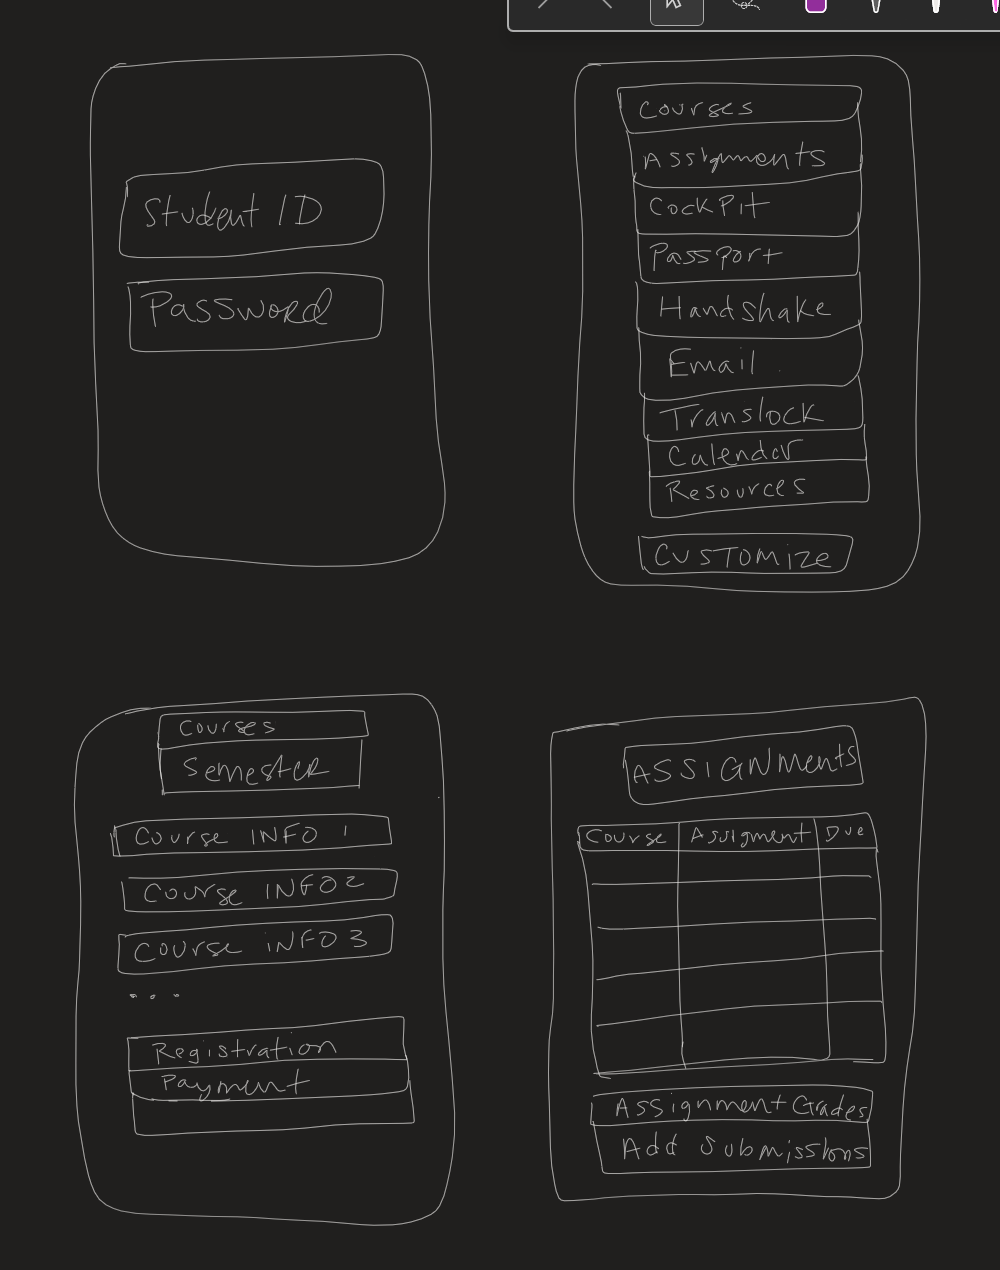 Student ID
Password
Courses
Assignments
Cockpit
Passport
Handshake
Email
Translock
Calendar
Resources
Customize
Courses
Semester
Course INFO 1
Course INFO 2
Course iNFO 3
...
Registration
Payment
ASSIGNments
Course Assignment Due
Assignment Grades
Add Submissions